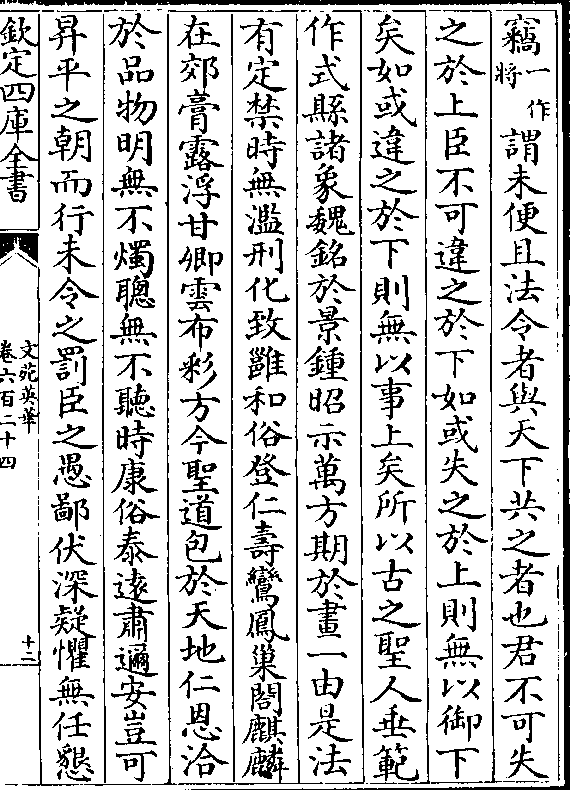 竊一作將謂未便且法令者與天下共之者也君不可失
之於上臣不可違之於下如或失之於上則無以御下
矣如或違之於下則無以事上矣所以古之聖人垂範
作式縣諸象魏銘於景鍾昭示萬方期於畫一由是法
有定禁時無濫刑化致雝和俗登仁壽鸞鳳巢閣麒麟
在郊膏露浮甘卿雲布彩方今聖道包於天地仁恩洽
於品物明無不燭聰無不聽時康俗泰逺肅邇安豈可
昇平之朝而行未令之罰臣之愚鄙伏深疑懼無任懇
欽定四庫全書
文苑英華
卷六百二十四
十二